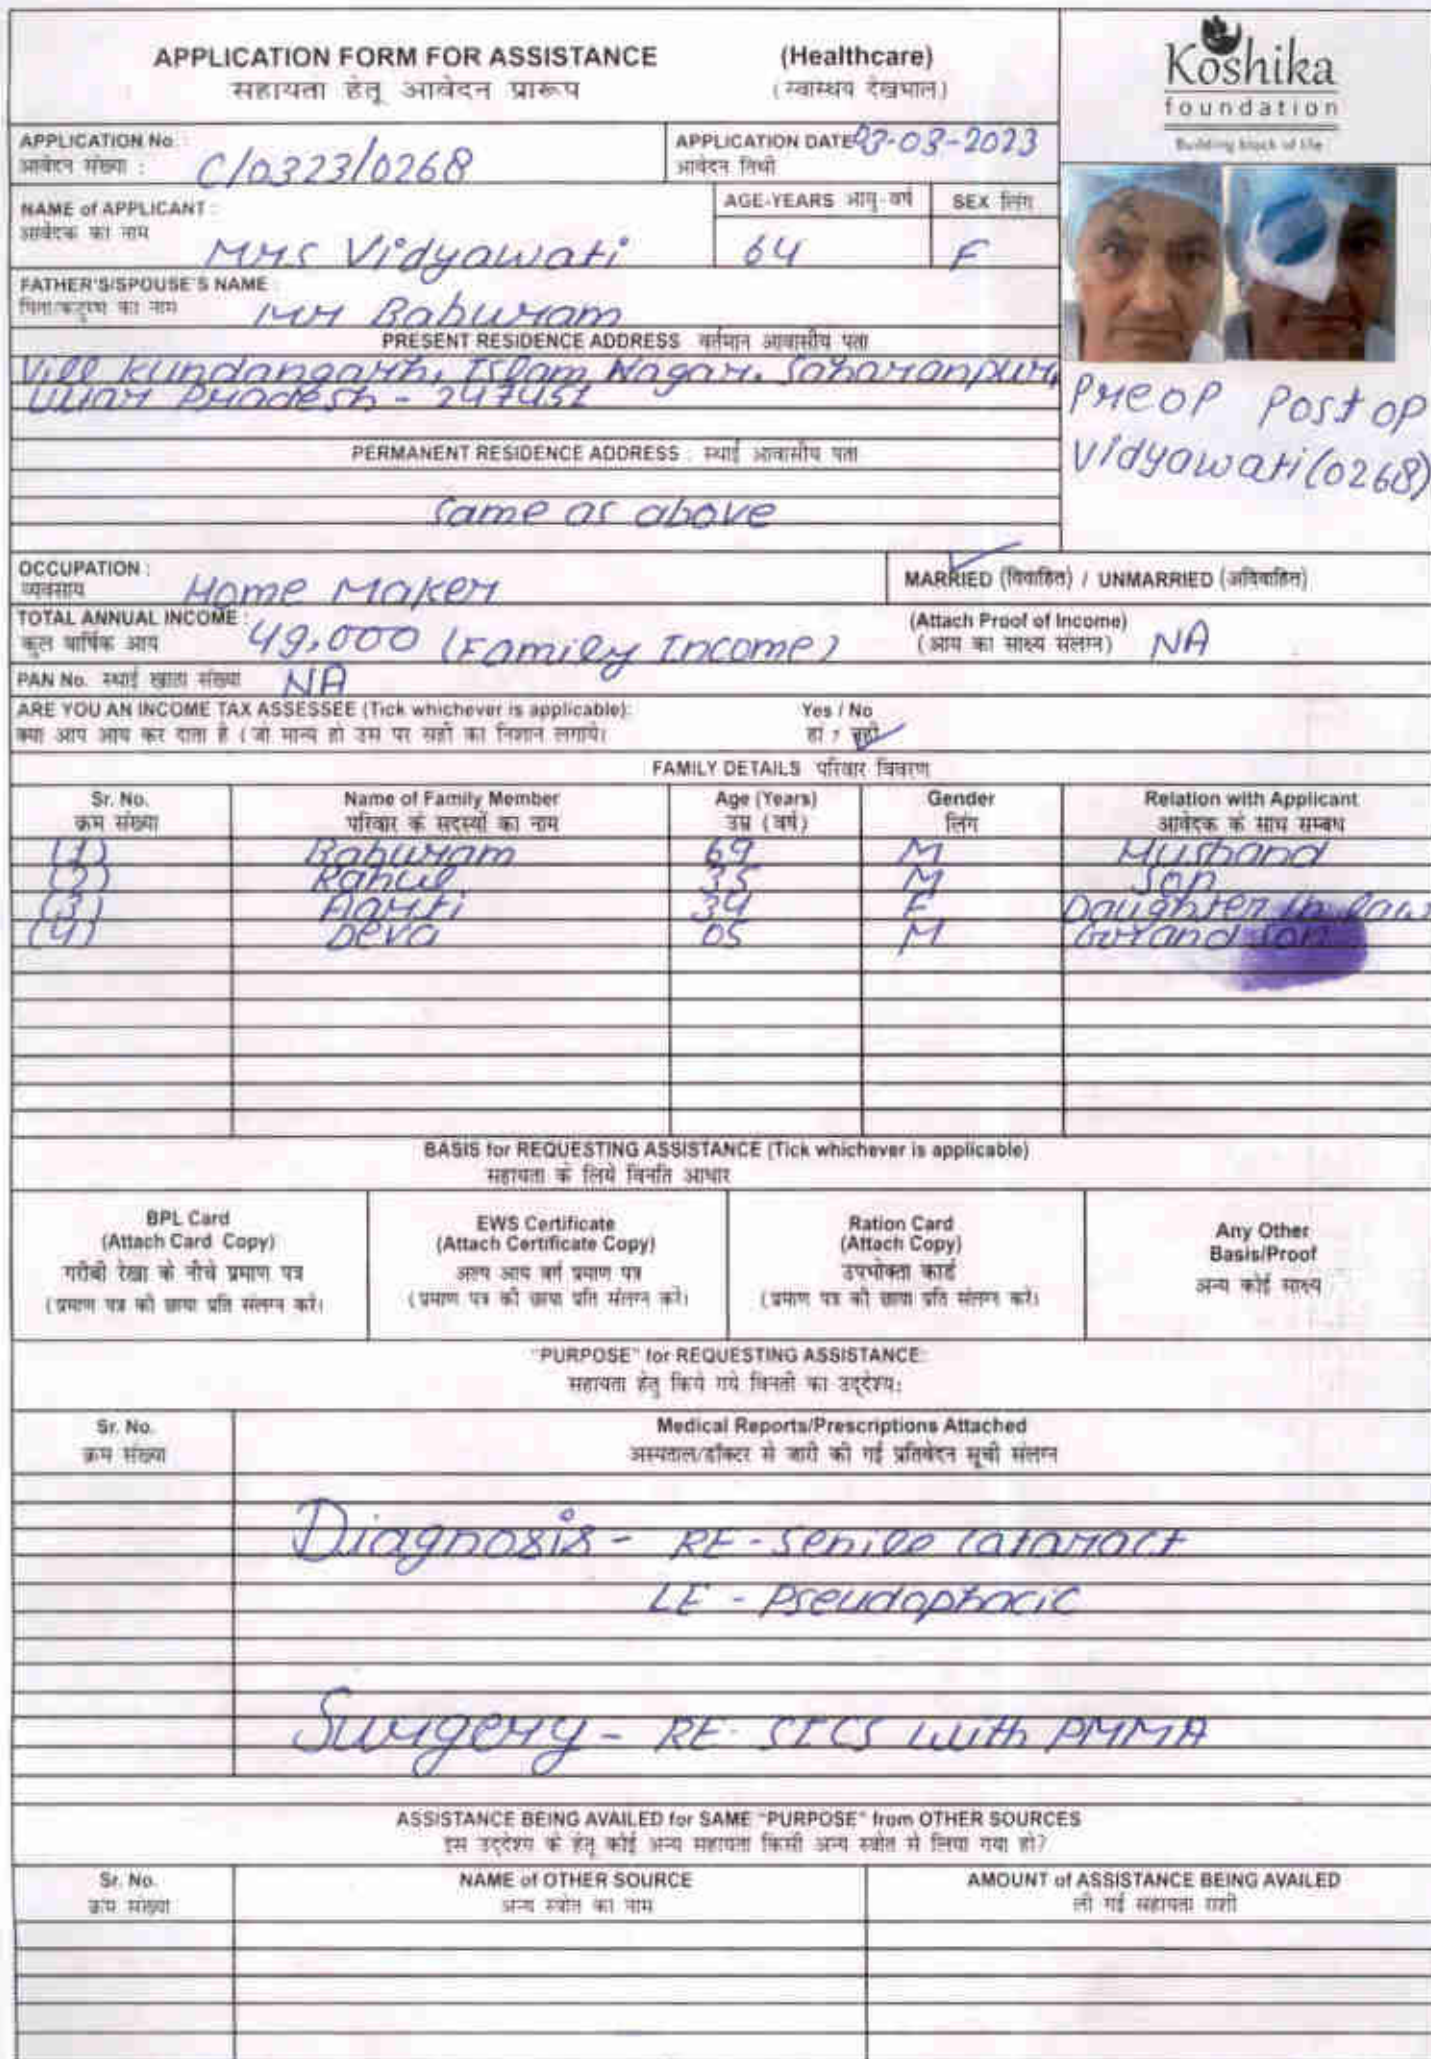 APPLICATION FORM FOR ASSISTANCE (Healthcare)
सहायता हेतू आवेदन प्रारूप (स्वास्थय देखभाल)
Koshika
foundation
Building block of life
APPLICATION No.
आवेदन संख्या : C/0323/0268
APPLICATION DATE 03-03-2023
आवेदन तिथी
NAME of APPLICANT :
आवेदक का नाम Mrs Vidyawati
AGE-YEARS आयु-वर्ष 64
SEX लिंग F
FATHER'S/SPOUSE'S NAME
Mr Baburam
PRESENT RESIDENCE ADDRESS वर्तमान आवासीय पता
Vill Kundangarh, Islam Nagar, Saharanpur,
Uttar Pradesh - 247451
Preop Post op
Vidyawati (0268)
PERMANENT RESIDENCE ADDRESS : स्थाई आवासीय पता
Same as above
OCCUPATION :
व्यवसाय Home Maker
MARRIED (विवाहित) / UNMARRIED (अविवाहित)
TOTAL ANNUAL INCOME :
कुल वार्षिक आय 49,000 (Family Income)
(Attach Proof of Income)
(आय का साक्ष्य संलग्न) NA
PAN No. स्थाई खाता संख्या NA
ARE YOU AN INCOME TAX ASSESSEE (Tick whichever is applicable): Yes / No
क्या आप आय कर दाता है (जो मान्य हो उस पर सही का निशान लगाये। हां / नहीं
FAMILY DETAILS परिवार विवरण
Sr. No. Name of Family Member Age (Years) Gender Relation with Applicant
क्रम संख्या परिवार के सदस्यों का नाम उम्र (वर्ष) लिंग आवेदक के साथ सम्बंध
(1) Baburam 69 M Husband
(2) Rahul 35 M Son
(3) Aarti 34 F Daughter in law
(4) Deva 05 M Grand Son
BASIS for REQUESTING ASSISTANCE (Tick whichever is applicable)
सहायता के लिये विनति आधार
BPL Card
(Attach Card Copy)
गरीबी रेखा के नीचे प्रमाण पत्र
(प्रमाण पत्र की छाया प्रति संलग्न करें।
EWS Certificate
(Attach Certificate Copy)
अल्प आय वर्ग प्रमाण पत्र
(प्रमाण पत्र की छाया प्रति संलग्न करें।
Ration Card
(Attach Copy)
उपभोक्ता कार्ड
(प्रमाण पत्र की छाया प्रति संलग्न करें।
Any Other
Basis/Proof
अन्य कोई साक्ष्य
"PURPOSE" for REQUESTING ASSISTANCE:
सहायता हेतु किये गये विनती का उद्देश्य:
Sr. No. Medical Reports/Prescriptions Attached
क्रम संख्या अस्पताल/डॉक्टर से जारी की गई प्रतिवेदन सूची संलग्न
Diagnosis - RE - Senile Cataract
LE - Pseudophacic
Surgery - RE - SICS with PMMA
ASSISTANCE BEING AVAILED for SAME "PURPOSE" from OTHER SOURCES
इस उद्देश्य के हेतू कोई अन्य सहायता किसी अन्य स्त्रोत से लिया गया हो?
Sr. No. NAME of OTHER SOURCE AMOUNT of ASSISTANCE BEING AVAILED
क्रम संख्या अन्य स्त्रोत का नाम ली गई सहायता राशी